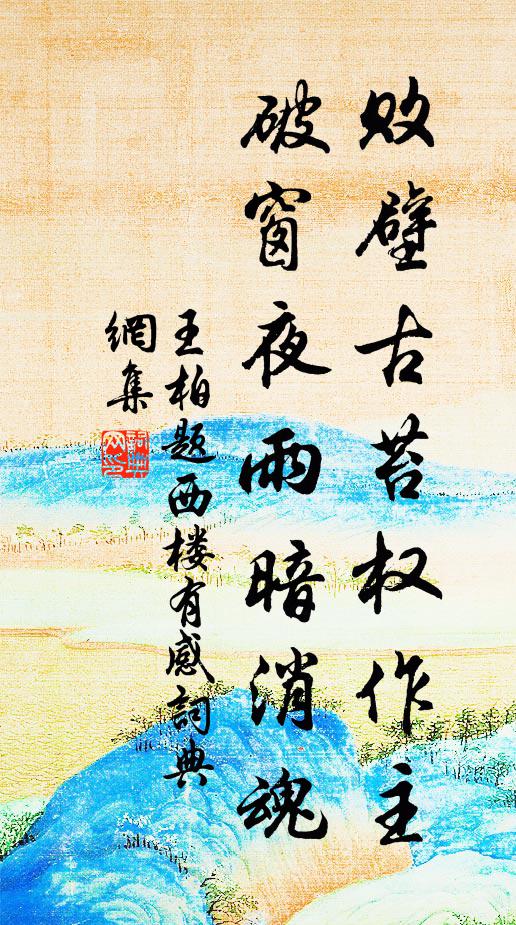 败壁古苔权作主
破窗夜雨暗消魂
王柏题西楼有感词典
網集